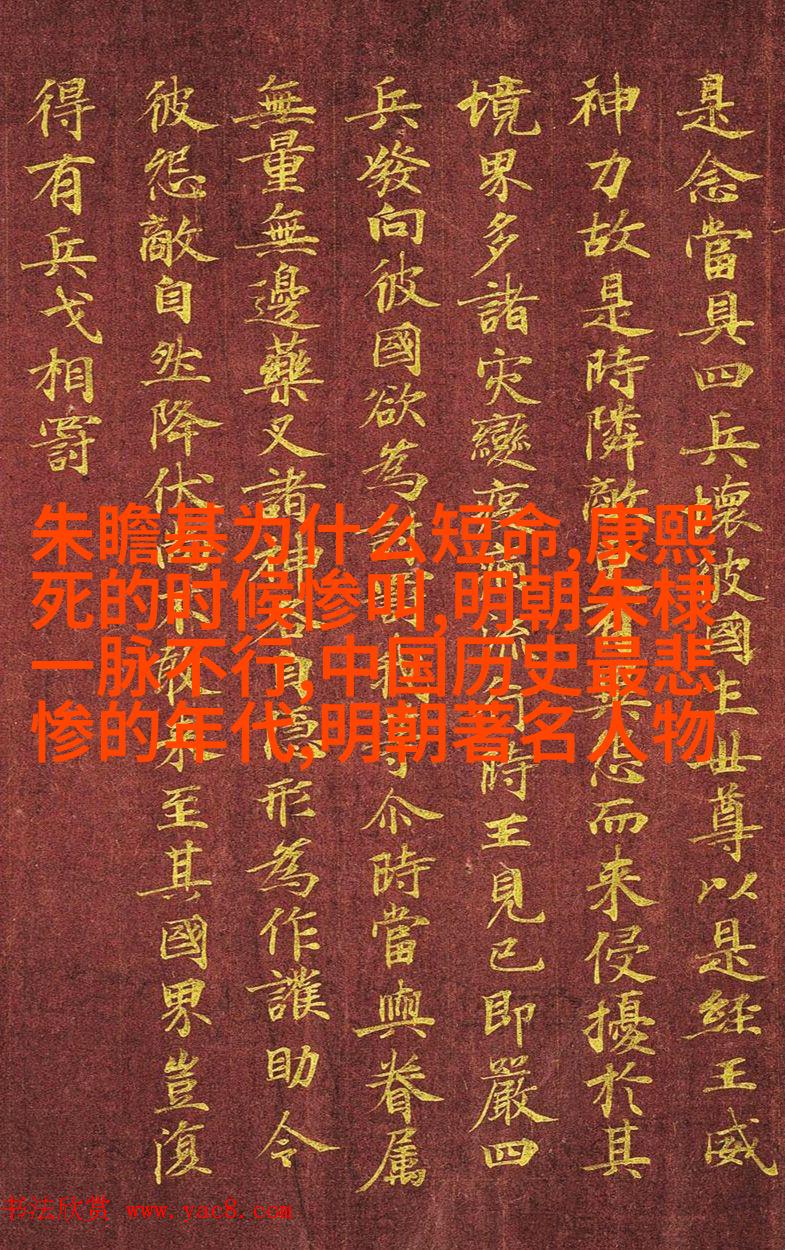 是念當具四兵壞彼國土世尊以是經王威
神力故是時隣敵更有異怨而来侵擾於其
境界多諸灾變疫病流行時王見已即嚴四
兵發向彼國欲為討罰我等尒時當與眷属
無量無邊藥叉諸神各自隱形為作護助令
彼怨敵自然降伏尚不敢来至其國界豈復
得有兵戈相罸
朱瞻基为什么短命,康熙
死的时候惨叫,明朝朱棣
一脉不行,中国历史最悲
惨的年代,明朝著名人物
书法欣赏 www.yac8.com